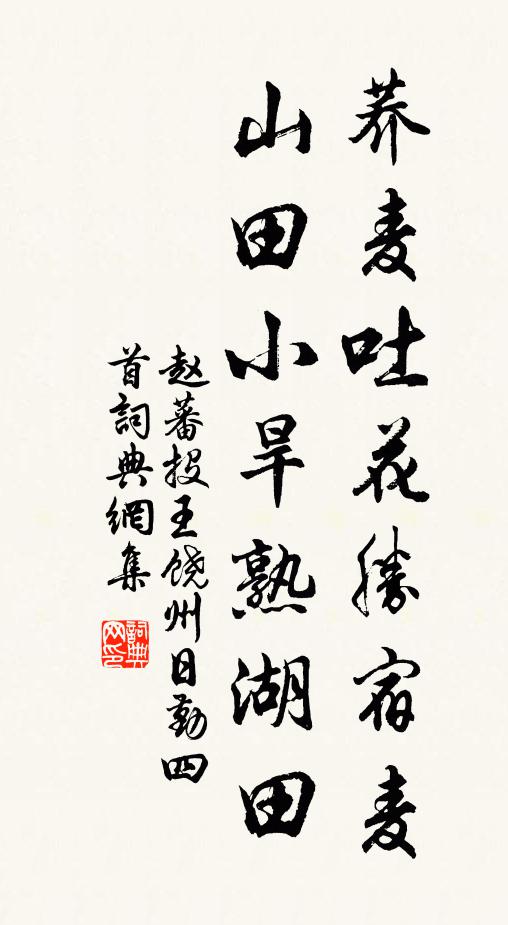 荞麦吐花勝宿麦
山田小旱熟湖田
赵蕃投王饶州日勤四
首詞典網集
詞典网印